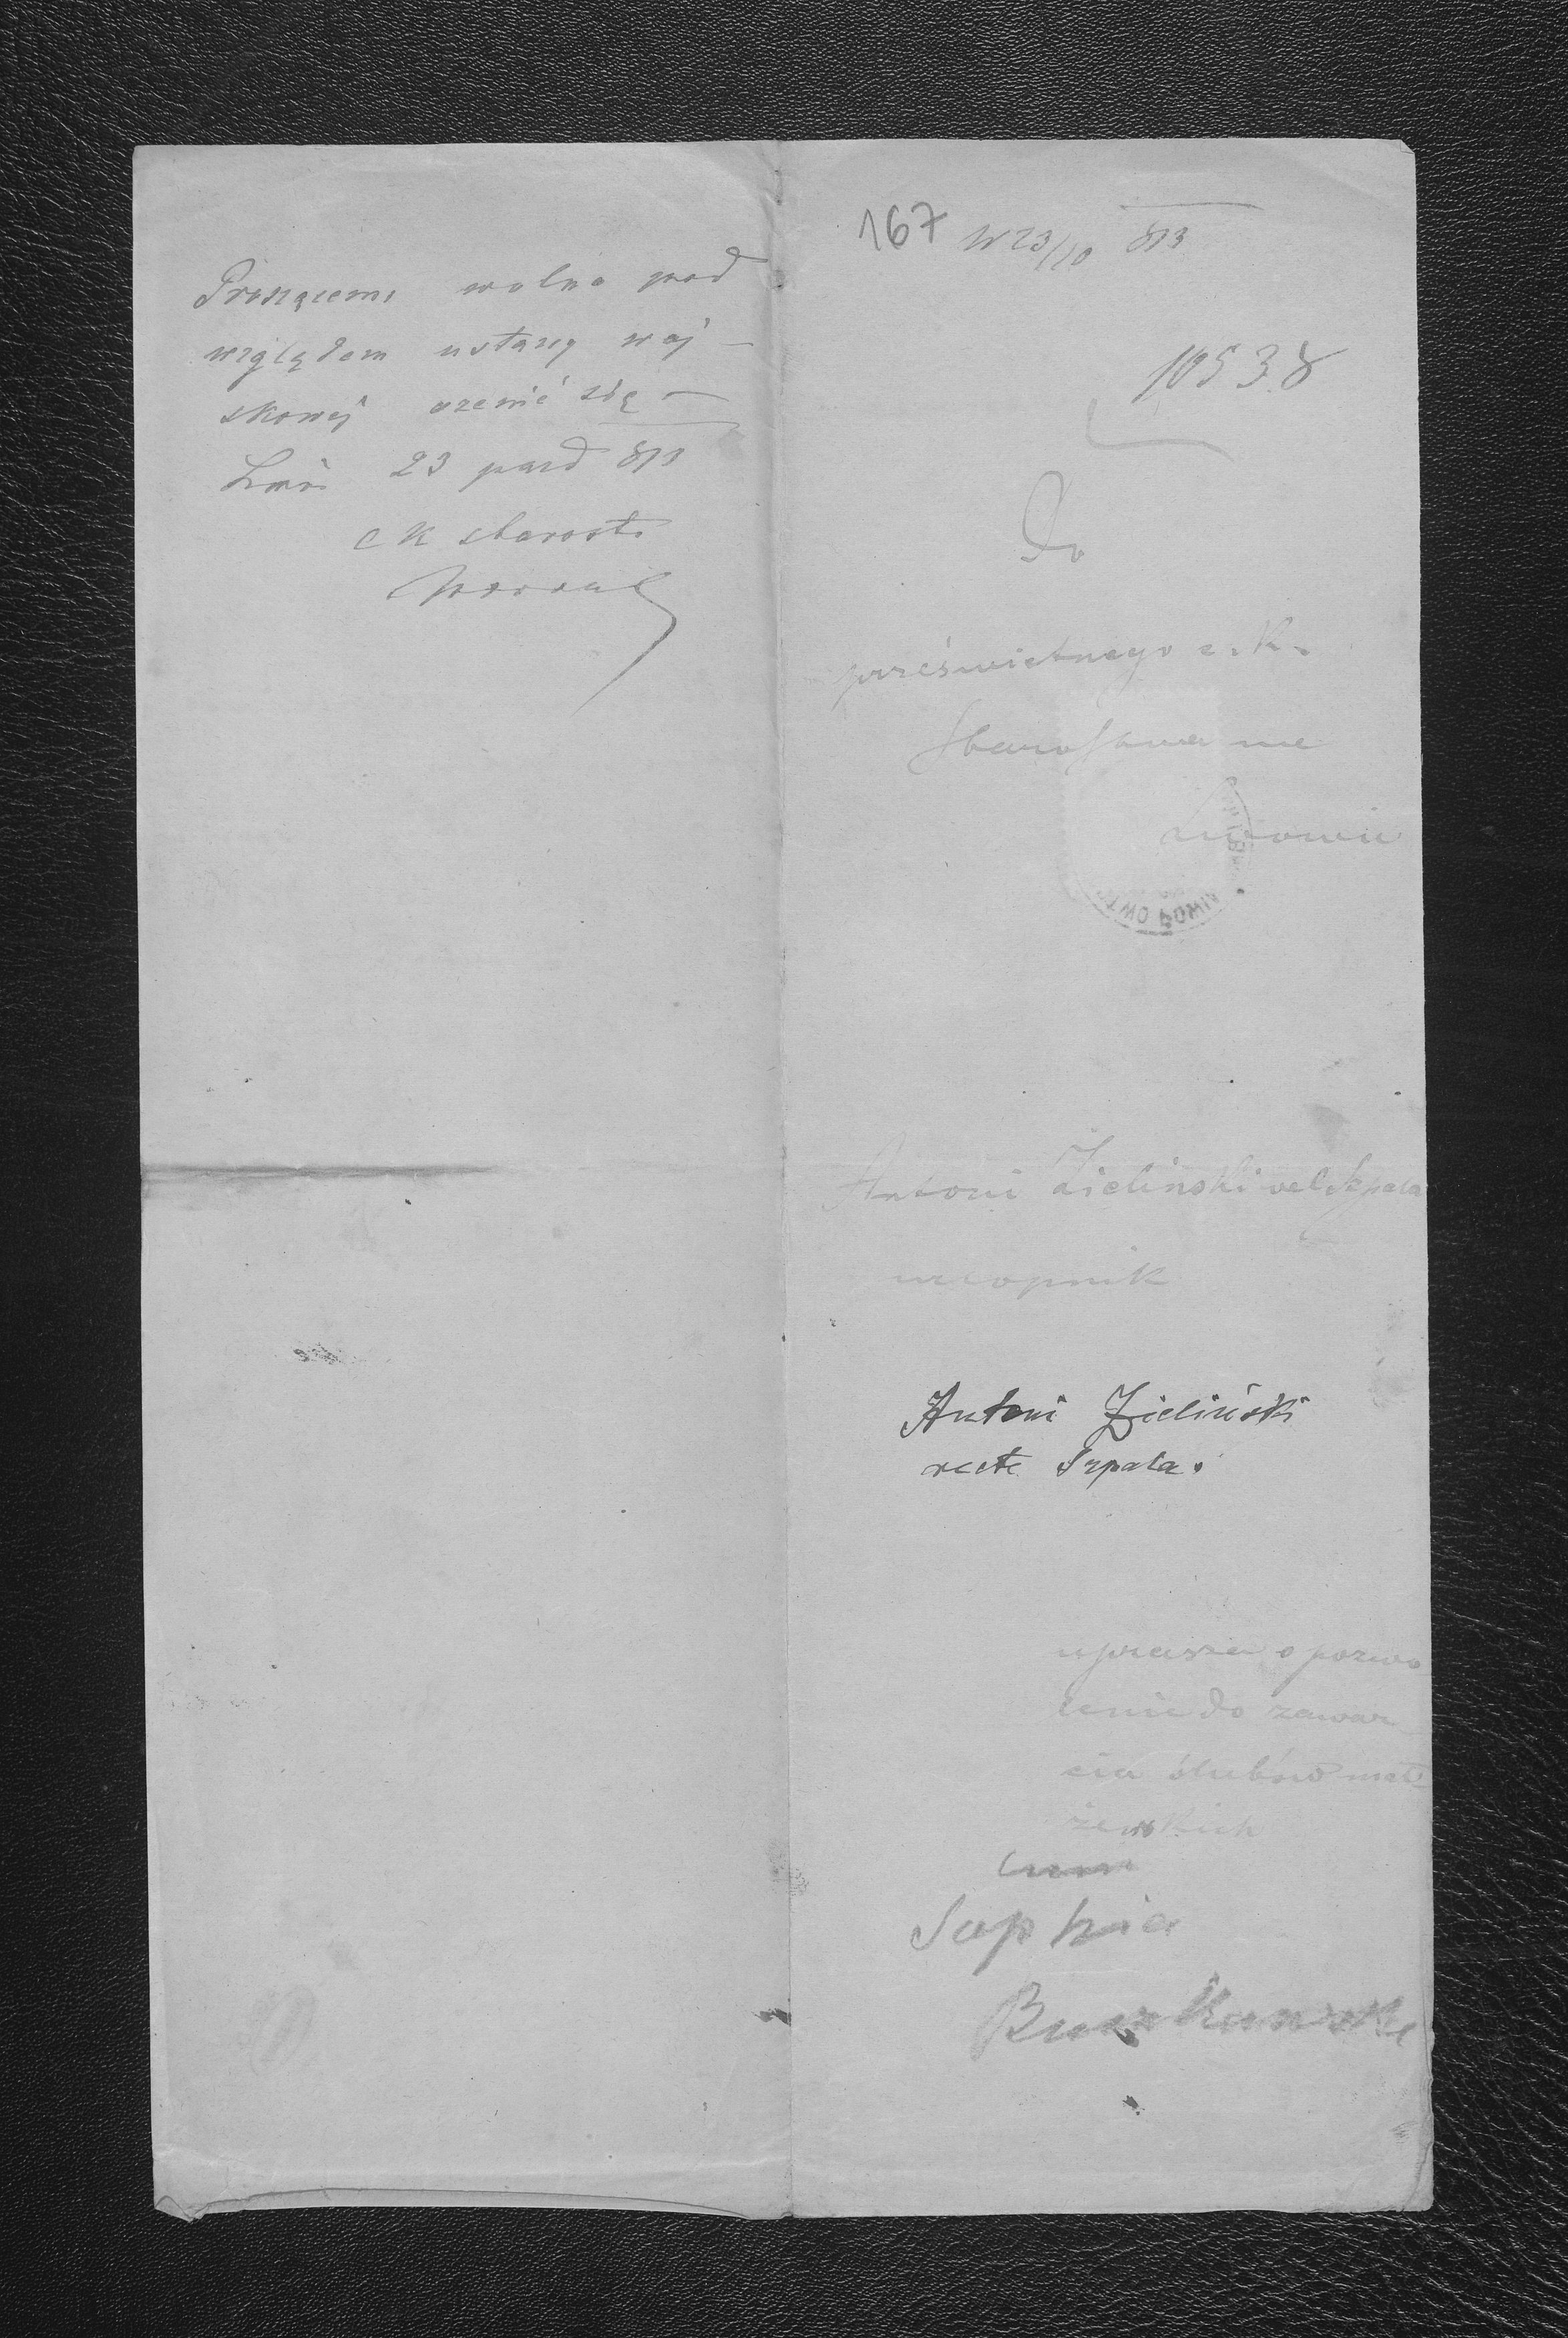 Proszącemu wolno pod
względem ustawy woj-
skowej ożenić się —
Lwów 23 paźd 873
c k starosta
167 W 23/10 873
10538
Do
prześwietnego c. K.
Starostwa we
Lwowie
Antoni Zieliński vel Szpala
urlopnik
Antoni Zieliński
recte Szpala.
uprasza o pozwo
lenie do zawar
cia ślubów mał
żeńskich
cum
Sophia